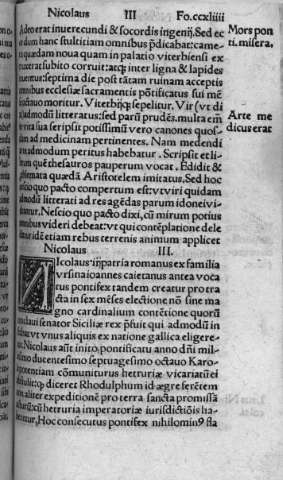 Nicolaus III Fo.ccxliiii
Adeo erat inuerecundi & socordis ingenij. Sed ec
dum hanc stultitiam omnibus p̄dicabat: came⸗
quadam noua quam in palatio viterbiensi ex
erat subito corruit: acq; inter ligna & lapides
uentus: septima die post tātam ruinam acceptis
omnibus ecclesiaē sacramentis pōtificatus sui mē
octauo moritur. Viterbijq; sepelitur. Vir (vt di
admodū litteratus: sed parū prudēs. multa em̄
vita sua scripsit potissimū vero canones quos⸗
ad medicinam pertinentes. Nam medendi
admodum peritus habebatur. Scripsit et li⸗
quē thesauros pauperum vocat. Edidit &
blemata quædā Aristotelem imitatus. Sed hoc
quo pacto compertum est: vt viri quidam
admodū litterati ad res agēdas parum idonei vi⸗
antur. Nescio quo pacto dixi, cū mirum potius
omnibus videri debeat: vt qui contēplatione dele
idē etiam rebus terrenis animum applicet
Mors pon
ti. misera.
Arte me
dicus erat
Nicolaus III.
Nicolaus inpatria romanus ex familia
vrsina ioannes caietanus antea voca
tus pontifex tandem creatur pro tra
cta in sex mēses electione nō sine ma
gno cardinalium contētione quorū
claui senator Siciliæ rex p̄fuit qui admodū in
bat vt vnus aliquis ex natione gallica eligere⸗
Nicolaus aūt inito pontificatu anno dn̄i mil⸗
simo ducentesimo septuagesimo octauo Karo⸗
potentiam cōminuturus hetruriæ vicariatū ei
q; diceret Rhodulphum id ægre ferētem
aliter expeditionē pro terra sancta promissā
hetruria imperatoriæ iurisdictiōis ha⸗
Hoc consecutus pontifex nihilomin9 sta